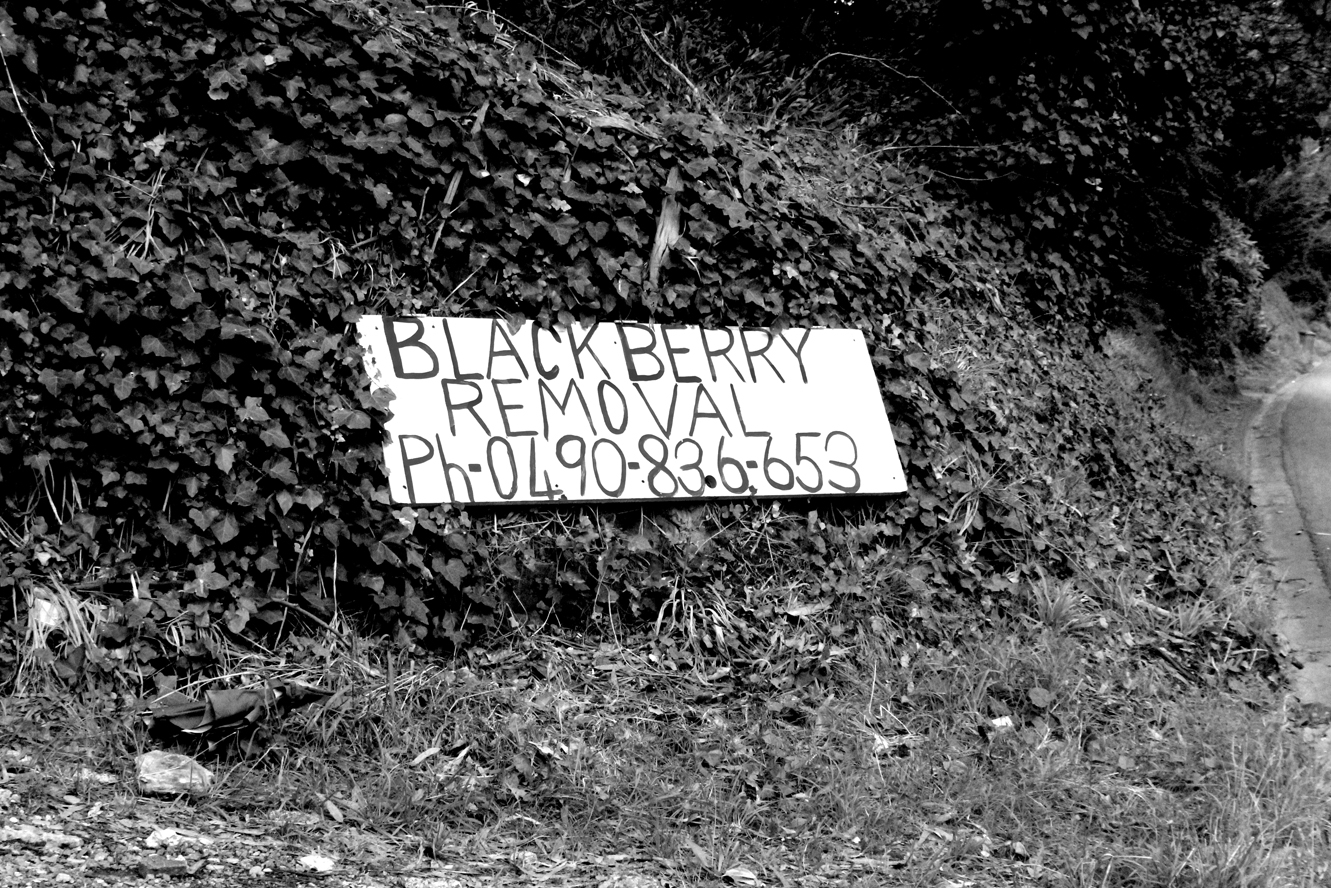 BLACKBERRY
REMOVAL
Ph-0490-836-653